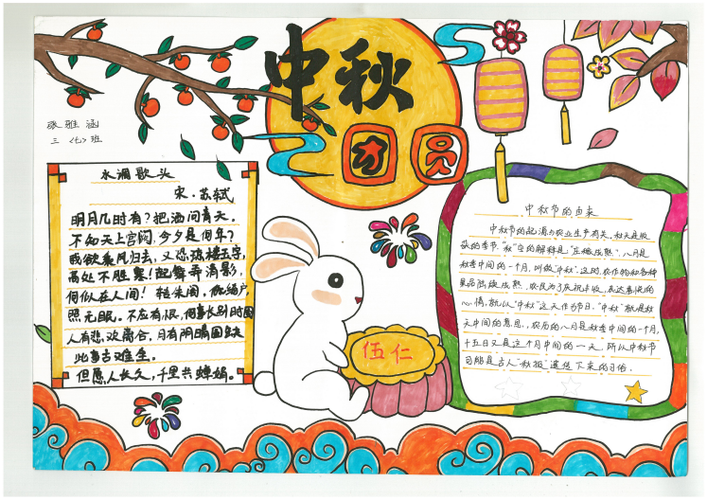 中秋
团圆
张雅涵
三〈七〉班
水调歌头
宋·苏轼
明月几时有？把酒问青天。
不知天上宫阙，今夕是何年？
我欲乘风归去，又恐琼楼玉宇，
高处不胜寒！起舞弄清影，
何似在人间！转朱阁，低绮户，
照无眠。不应有恨，何事长别时圆
人有悲欢离合，月有阴晴圆缺
此事古难全。
但愿人长久，千里共婵娟。
伍仁
中秋节的由来
中秋节的起源与农业生产有关，秋天是收
获的季节。“秋”字的解释是：“庄稼成熟”。八月是
秋季中间的一个月，叫做“中秋”。这时，农作物和各种
果品陆续成熟，农民为了庆祝丰收，表达喜悦的
心情，就以“中秋”这天作为节日。“中秋”就是秋
天中间的意思，农历的八月是秋季中间的一个月，
十五日又是这个月中间的一天，所以中秋节
可能是古人“秋报”遗传下来的习俗。